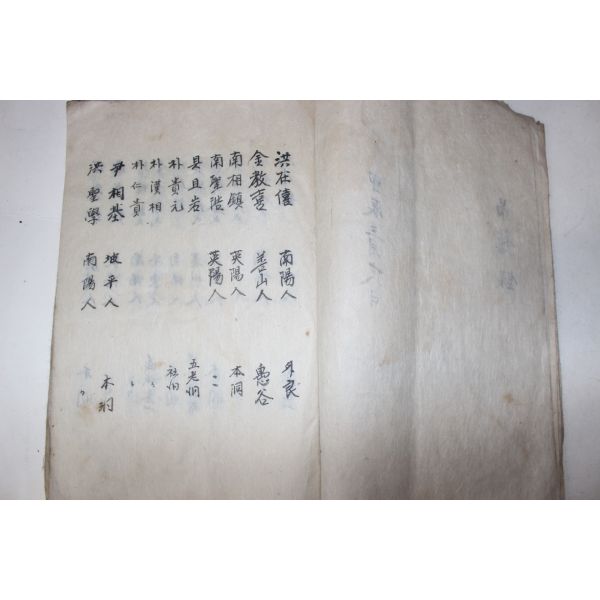 洪在僖 南陽人 外良
金教喜 善山人 惠谷
南相鎮 英陽人 本洞
南聖浩 英陽人 〃
具且岩 五老洞
朴貴元 社洞
朴漢相 〃
朴仁貴 〃
尹相基 坡平人 本洞
洪聖學 南陽人 〃